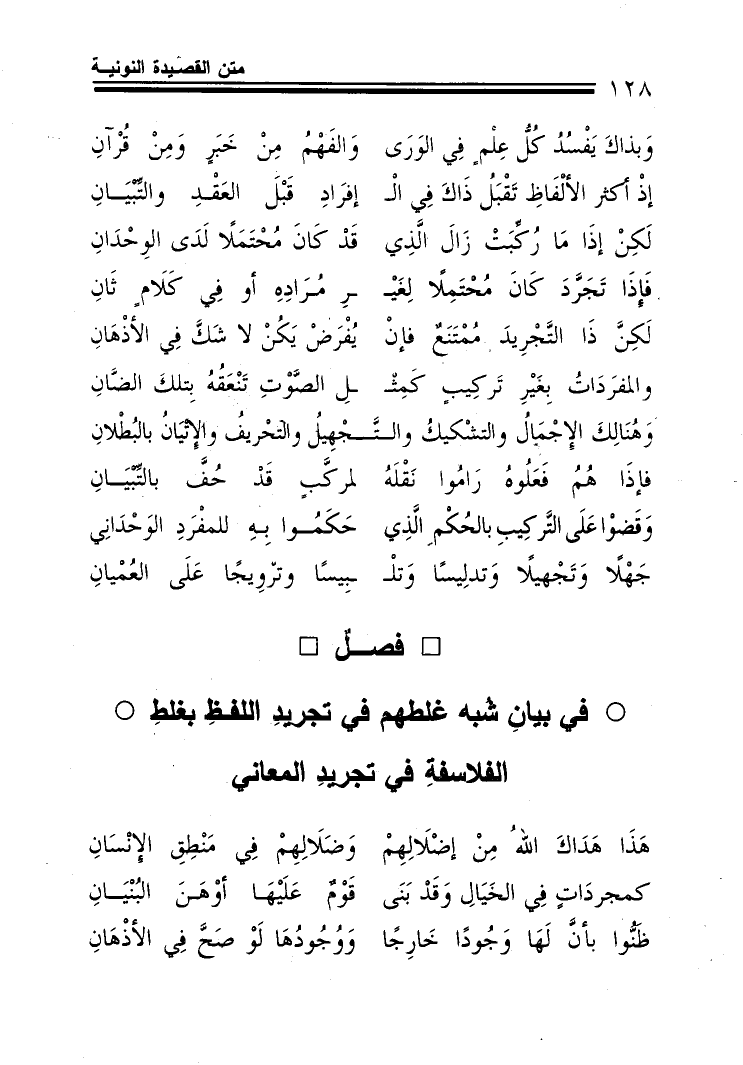 متن القصيدة النونيــة
١٢٨
وَبذاكَ يَفْسُدُ كُلُّ عِلْمٍ فِي الوَرَى وَالفَهْمُ مِنْ خَبَرٍ وَمِنْ قُرْآنِ
إذْ أكثر الألْفَاظِ تَقْبَلُ ذَاكَ فِي الْـ إفرَادِ قَبْلَ العَقْـدِ والتِّبْيَـانِ
لَكِنْ إذَا مَا رُكِّبَتْ زَالَ الَّذِي قَدْ كَانَ مُحْتَمَلًا لَدَى الوِحْدَانِ
فَإِذَا تَجَرَّدَ كَانَ مُحْتَمِلًا لِغَيْـ ـرِ مُـرَادِهِ أو فِي كَلَامٍ ثَانِ
لَكِنَّ ذَا التَّجْرِيدَ مُمْتَنَعٌ فإنْ يُفْرَضْ يَكُنْ لا شَكَّ فِي الأذْهَانِ
والمفرَدَاتُ بِغَيْرِ تَركِيبٍ كَمِثْـ ـلِ الصَّوْتِ تَنْعَقُهُ بِتلكَ الضَّانِ
وَهُنَالِكَ الإجْمَالُ والتشكيكُ والـتَّـ ـجْهِيلُ والتَحْرِيفُ والإتْيَانُ بالبُطْلانِ
فإذَا هُمُ فَعَلُوهُ رَامُوا نَقْلَهُ لمركَّبٍ قَدْ حُفَّ بالتِّبْيَـانِ
وَقَضوْا عَلَى التَّركِيبِ بالحُكْمِ الَّذِي حَكَمُـوا بِـهِ للمفْرَدِ الوَحْدَانِي
جَهْلًا وَتَجْهِيلًا وَتدلِيسًا وَتلْـ ـبِيسًا وترْوِيجًا عَلَى العُمْيانِ
□ فصـــلٌ □
○ في بيانِ شبه غلطهم في تجريدِ اللفـظِ بغلطِ ○
الفلاسفةِ في تجريدِ المعاني
هَذَا هَدَاكَ اللهُ مِنْ إضْلَالِهِمْ وَضَلَالِهِمْ فِي مَنْطِقِ الإنْسَانِ
كمجردَاتٍ فِي الخَيَالِ وَقَدْ بَنَى قَوْمٌ عَلَيْهَا أوْهَنَ البُنْيَـانِ
ظَنُّوا بأنَّ لَهَا وَجُودًا خَارِجًا وَوُجُودُهَا لَوْ صَحَّ فِي الأذْهَانِ